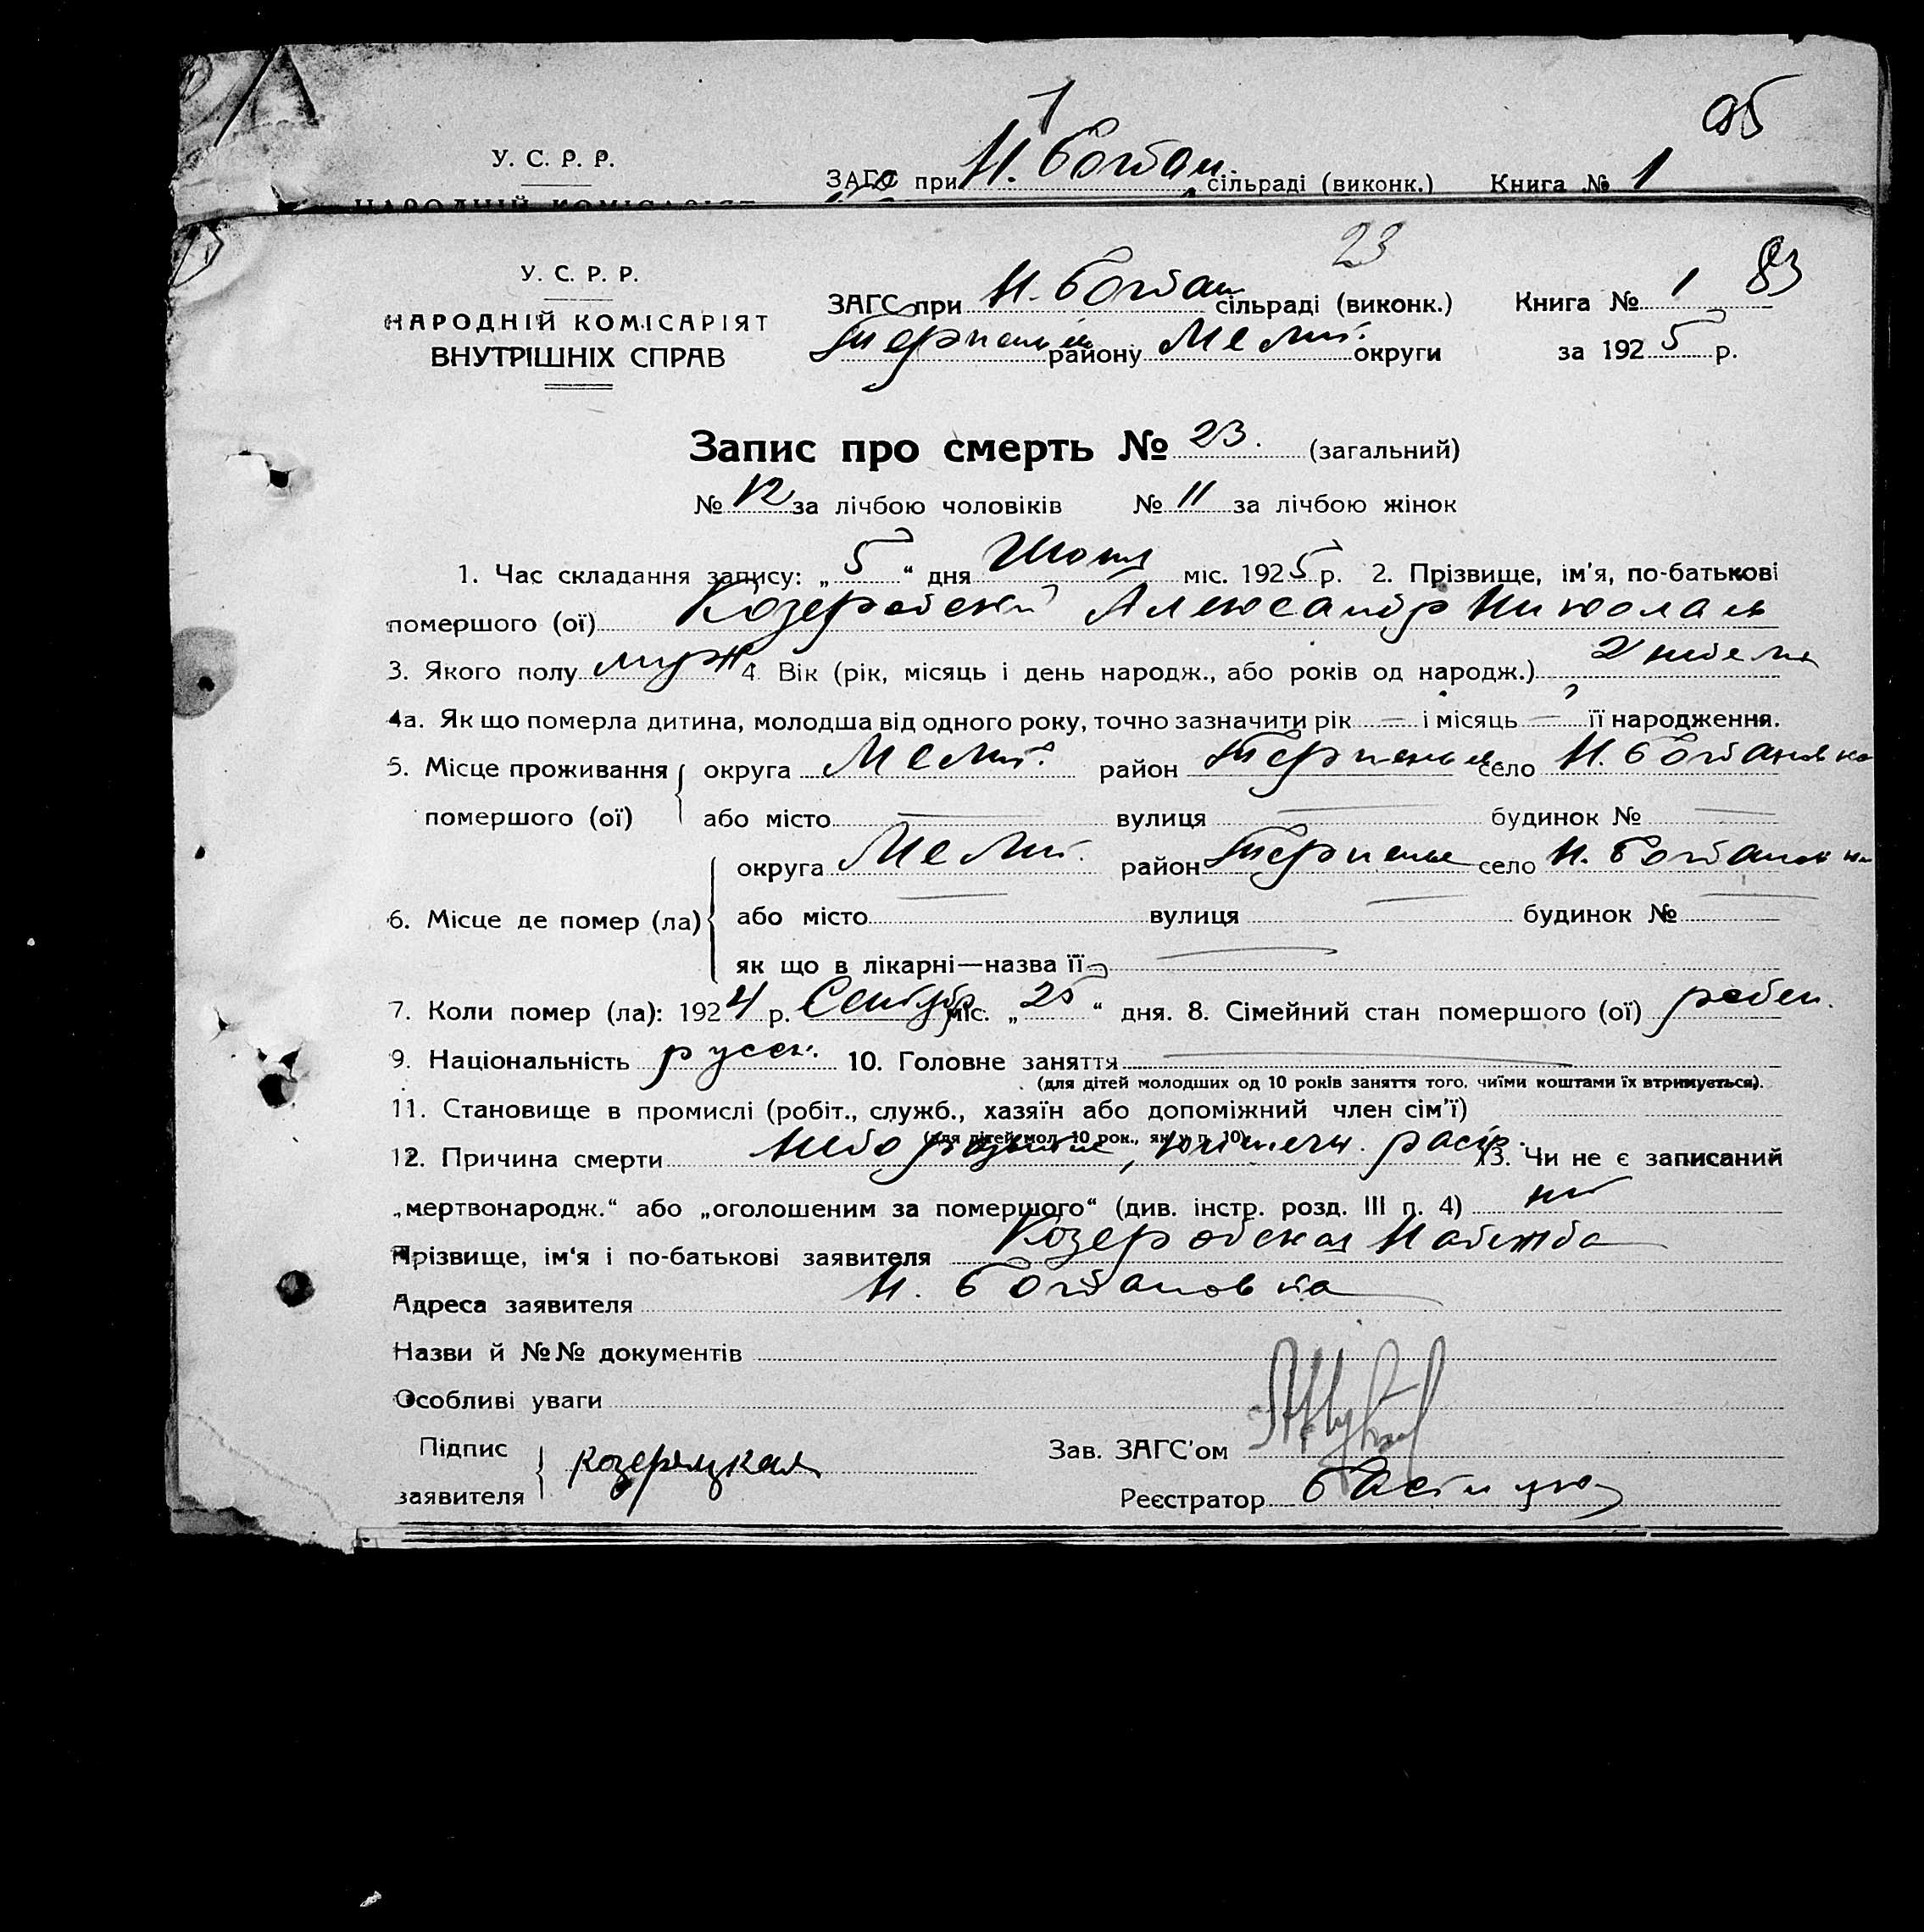 95
1
У. С. Р. Р.
ЗАГС при Н. Богдан. сільраді (виконк.) Книга № 1
НАРОДНІЙ КОМІСАРІЯТ
23
83
У. С. Р. Р.
ЗАГС при Н. Богдан сільраді (виконк.) Книга № 1
НАРОДНІЙ КОМІСАРІЯТ
ВНУТРІШНІХ СПРАВ
району Мелит. округи за 1925 р.
Запис про смерть № 23. (загальний)
№ 12 за лічбою чоловіків № 11 за лічбою жінок
1. Час складання запису: „5“ дня міс. 1925 р. 2. Прізвище, ім'я, по-батькові
помершого (ої) Александр Николаев
3. Якого полу муж 4. Вік (рік, місяць і день народж., або років од народж.) 2 недели
4а. Як що померла дитина, молодша від одного року, точно зазначити рік — і місяць — її народження.
5. Місце проживання округа Мелит. район Терпенье село Н. Богдановка
помершого (ої) або місто — вулиця — будинок № —
округа Мелит. район Терпенье село Н. Богдановка
6. Місце де помер (ла) або місто — вулиця — будинок № —
як що в лікарні—назва її —
7. Коли помер (ла): 1924 р. Сентябр міс. „25“ дня. 8. Сімейний стан помершого (ої) ребен.
9. Національність русск. 10. Головне заняття —
(для дітей молодших од 10 років заняття того, чиїми коштами їх втримується).
11. Становище в промислі (робіт., служб., хазяїн або допоміжний член сім'ї)
(для дітей мол. 10 рок., як у п. 10)
12. Причина смерти 13. Чи не є записаний
„мертвонародж.“ або „оголошеним за помершого“ (див. інстр. розд. III п. 4) нет
Прізвище, ім'я і по-батькові заявителя Надежда
Адреса заявителя Н. Богдановка
Назви й №№ документів
Особливі уваги
Підпис заявителя Козеряцкая Зав. ЗАГС'ом
Реєстратор